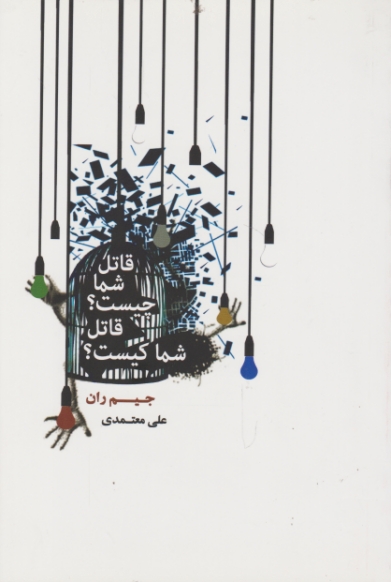 قاتل
شما
چیست؟
قاتل
شما کیست؟
جیم ران
علی معتمدی